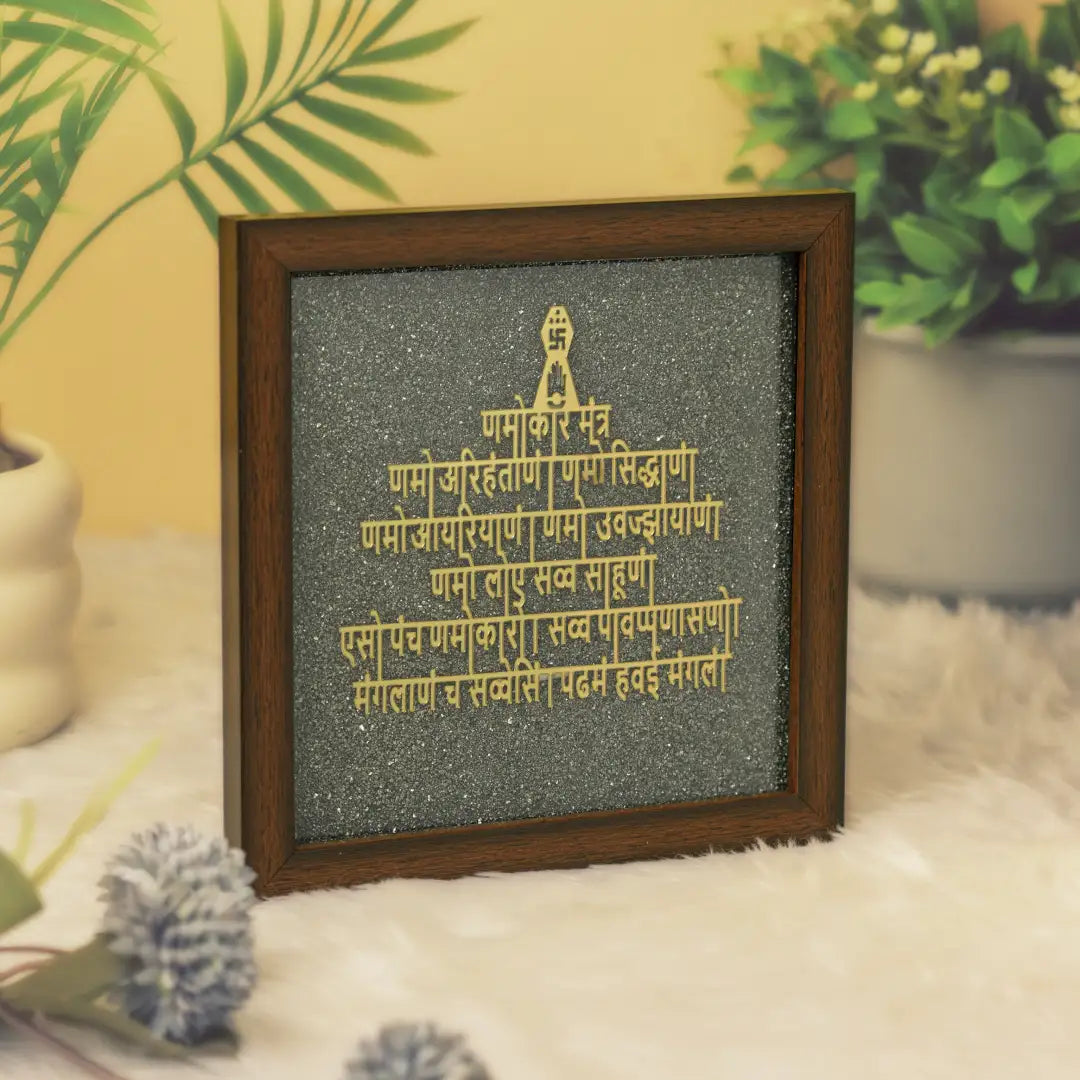 णमोकार मंत्र
णमो अरिहंताणं । णमो सिद्धाणं ।
णमो आयरियाणं । णमो उवज्झायाणं ।
णमो लोए सव्व साहूणं ।
एसो पंच णमोकारो । सव्व पावप्पणासणो ।
मंगलाणं च सव्वेसिं । पढमं हवइं मंगलं ।